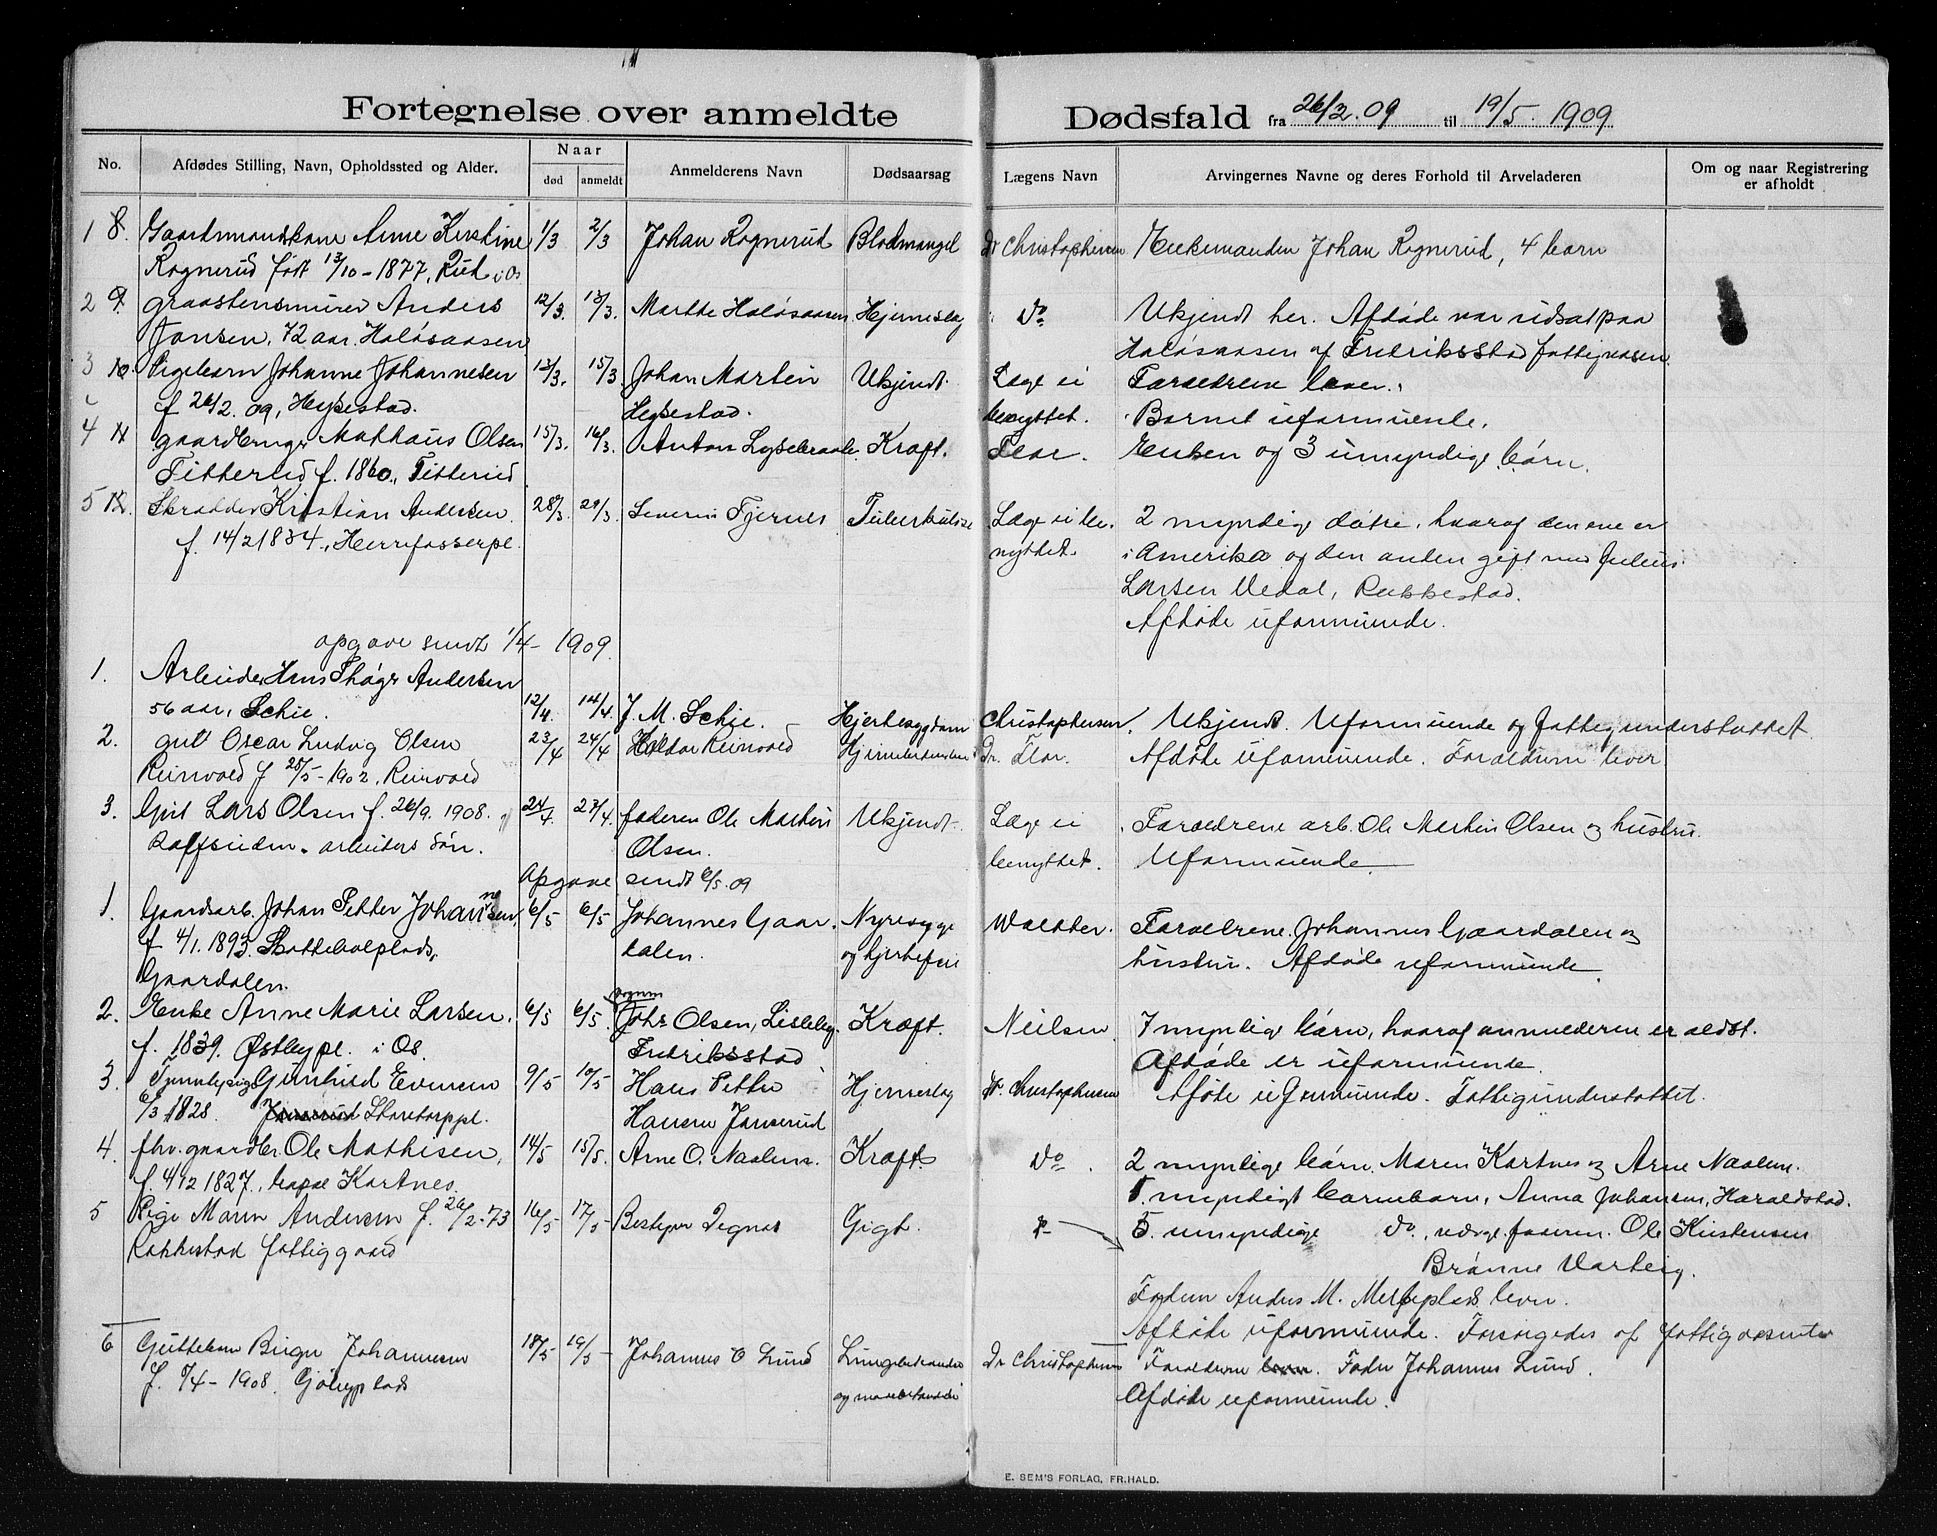 Fortegnelse over anmeldte Dødsfald fra 26/2.09 til 19/5 1909
No. Afdødes Stilling, Navn, Opholdssted og Alder. Naar død anmeldt Anmelderens Navn Dødsaarsag Lægens Navn Arvingernes Navne og deres Forhold til Arveladeren Om og naar Registrering er afholdt
1 8. Gaardmandskone Anne Kirstine 1/3 2/3 Johan Rognerud Blodmangel Dr Christophersen Enkemanden Johan Rognerud, 4 barn
Rognerud født 13/10-1877, Rud i Os
2 9. graastensmurer Anders 12/3. 13/3. Marthe Haløsaasen Hjerneslag Do Ukjendt her. Afdøde var udsat paa
Jansen, 72 aar. Haløsaasen Haløsaasen af Fredriksstad fattigvæsen
3 10 Pigebarn Johanne Johannesen 13/3. 15/3 Johan Martin Ukjendt. Læge ei Forældrene lever.
f 26/2.09, Hepestad. Hepestad. benyttet. Barnet uformuende.
4 11 gaardbruger Mathæus Olsen 15/3. 16/3. Anton Lysebraate Kræft. Flor. Enken og 3 umyndige børn.
Titterud f. 1860., Titterud
5 12. Skrædder Kristian Andersen 28/3. 29/3. Severin Fjernes Tuberkulose Læge ei be- 2 myndige døtre, hvoraf den ene er
f. 14/2 1834., Herrefosserpl. nyttet. i Amerika og den anden gift med Julius
Larsen Vedal, Rakkestad.
Afdøde uformuende.
opgave sendt 1/4-1909.
1. Arbeider Hans Thøger Andersen
56 aar, Schie. 12/4. 14/4. J. M. Schie. Hjertesygdom Christophersen. Ukjendt. Uformuende og fattigunderstøttet
2. gut Oscar Ludvig Olsen 23/4 24/4 Reinvold Dr. Flor. Afdøde uformuende. Forældrene lever
Reinvold f 25/5-1902, Reinvold
3. Gut Lars Olsen f. 26/9. 1908. 24/4. 27/4. faderen Ole Martin Ukjendt. Læge ei Forældrene arb. Ole Martin Olsen og hustru.
arbeiders søn. Olsen. benyttet. Uformuende
Opgave sendt 6/5.09
1. Gaardsarb. Johan Petter Johannesen, 6/5 6/5 Johannes Gaar- Nyresyge Walther. Forældrene Johannes Gaardalen og
f 4/1. 1893. Gaardalen. dalen. og hjertefeil hustru. Afdøde uformuende.
2. Enke Anne Marie Larsen. 6/5 6/5. sønnen Johs Olsen, Lisleby. Kræft. Neilsen 7 mynlige børn, hvoraf anmelderen er ældst.
f. 1839. Østbypl. i Os. Fredriksstad Afdøde er uformuende.
3. Gunhild Evensen 9/5 10/5 Hans Petter Hjerneslag Dr. Christophersen Afdøde uformuende. Fattigunderstøttet.
6/3 1828. Skaretorppl. Hansen Janserud
4. fhv. gaardbr. Ole Mathisen, 14/5 15/5. Arne O. Naalem. Kræft. Do. 2 mynlige børn Maren Kartnes og Arne Naalem.
f. 4/12 1827., Kartnes. 1 myndigt barnebarn, Anna Johansen, Haraldstad.
5. umyndige Do., værge faderen. Ole Kristensen
Brønne Varteig.
5 Pige Maren Andersen f. 26/2-73 16/5 17/5 Bestyrer Degnæs Gigt.
Rakkestad fattiggaard Faderen Anders M. lever.
Afdøde uformuende. Forsørgedes af fattigvæsenet
6 Guttebarn Birger Johannesen 18/5 19/5 Johannes O Lund Lungebetændelse Dr Christophersen Forældrene lever. Fader Johannes Lund.
f. 9/4-1908. Gjølbyplads og mavebetændelse Afdøde uformuende.
E. SEM'S FORLAG, FR.HALD.